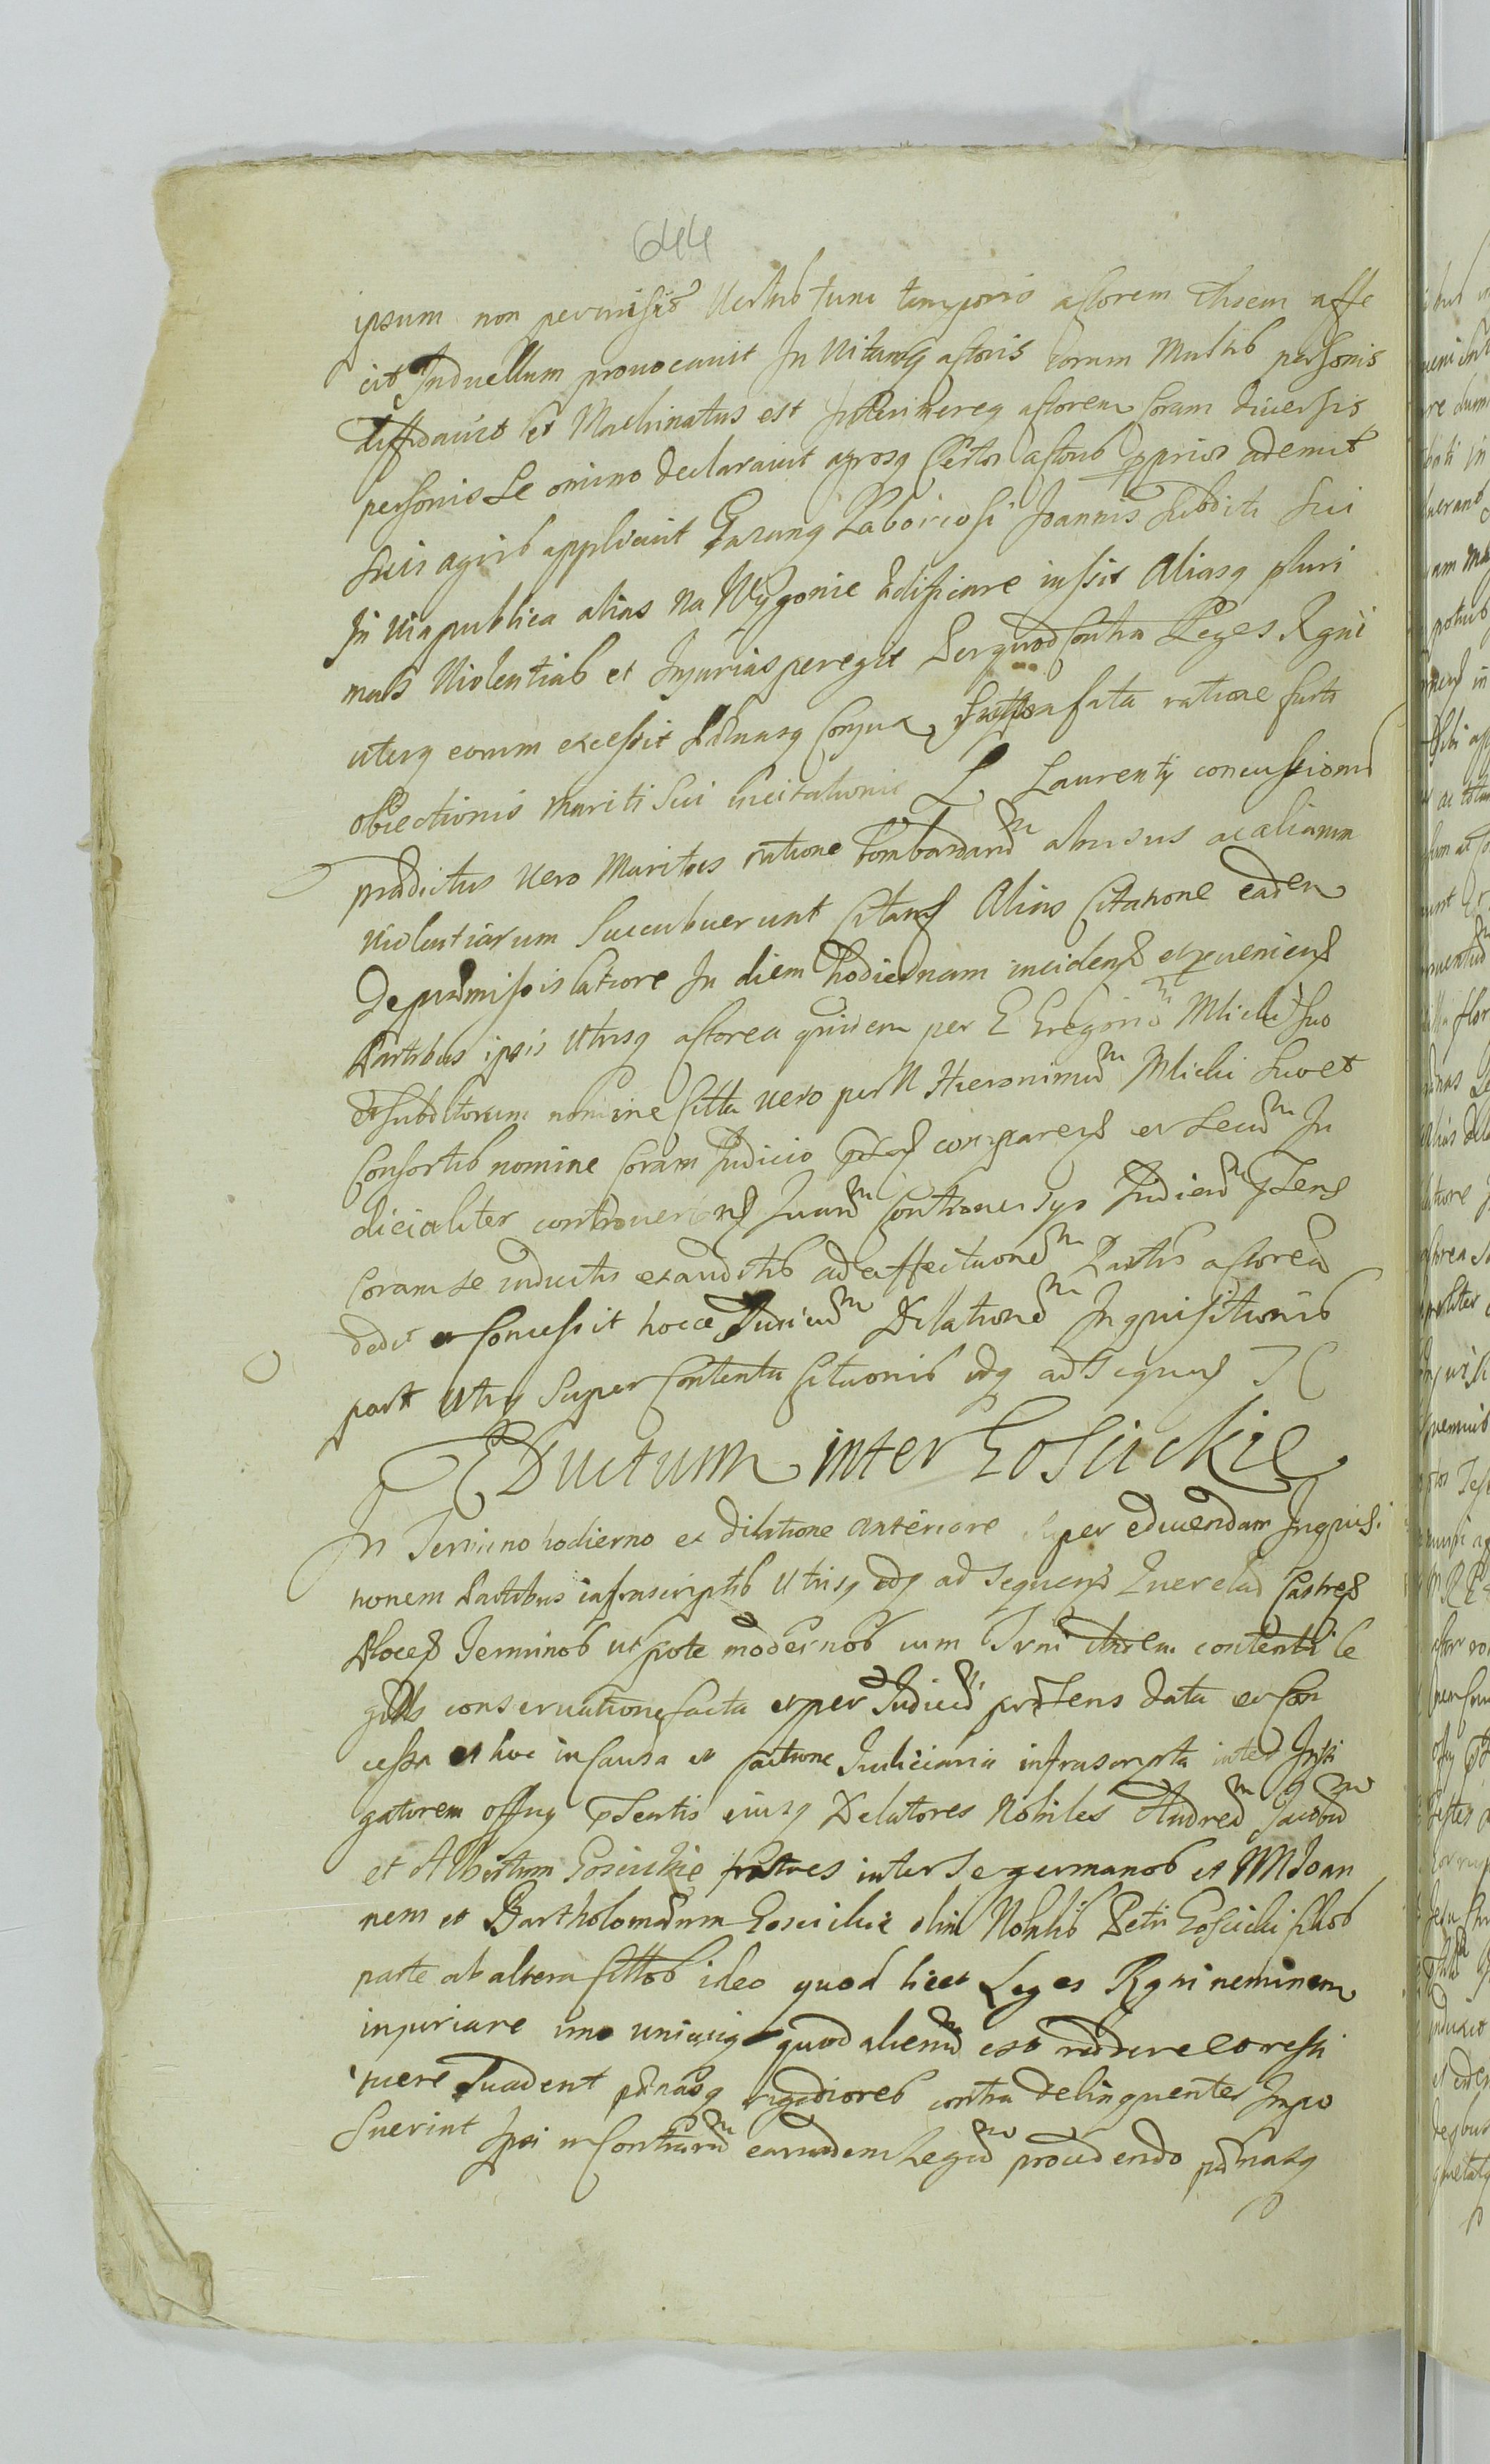 644
ipsum non permisit tunc temporis actorem affe
cit Induellum provocavit In Vitamq actoris coram Multis personis
diffidavit et Machinatus est Interimereq actorem coram diversis
personis se omnino declaravit agrosq certos actoris pprios ademit
suis agris applicuit Laboriosi Joannis subditi sui
In via publica alias Na Wygonie Edificare iussit Aliasq pluri
mas Violentias et Injurias peregit Per quod contra Leges Rgni
uterq eorum excessit Conjux ratione furti
obiectionis mariti sui incitationis L Laurentij concussionis
prædictus vero Maritus ratione bombardarum abusus ac aliarum
violentiarum Succubuerunt Alias Citatione eadem
De præmissis latiore In diem hodiernam incidens et pveniens
Partibus ipsis Utrisq actorea quidem per G Gregorium Mlicki suo
et subditorum nomine citta vero per N Hieronimum Mlicki suo et
Consortis nomine coram Judicio comparens et secum Ju
dicialiter controvertens Quarum Controversys Judicium pSens
coram se inductis exauditis ad affectationem Partis actorea
dedit et concessit hocce Judicium Dilationem Inquisitionis
parti Utriq super contenta Citationis adq ad sequens
Eductum inter Gosuckie
In Termino hodierno ex dilatione anteriore super educendam Inquisi
tionem Partibus infrascriptis Utrisq adq ad sequens Querelas Castres
Plocens Terminos utpote modernos cum contenti le
gitis conservatione facta et per Judicium præsens data et con
cessa et hoc in causa et actione Judiciaria infrascripta inter Insti
gatorem offny pSentis eiusq Delatores Nobiles Andream Jacobum
et Albertum Gosuckie fratres inter se germanos et NN Joan
nem et Bartholomæum Gosuckie olim Nobilis Petri Gosucki filios
parte ab altera cittos ideo quod licet Leges Rgni neminem
injuriare imo unicuiq quod alienum est reddere et resti
tuere suadent pænasq rigidiores contra delinquentes Impo
suerint Ipsi in contrarium earundem Legum procedendo pænasq